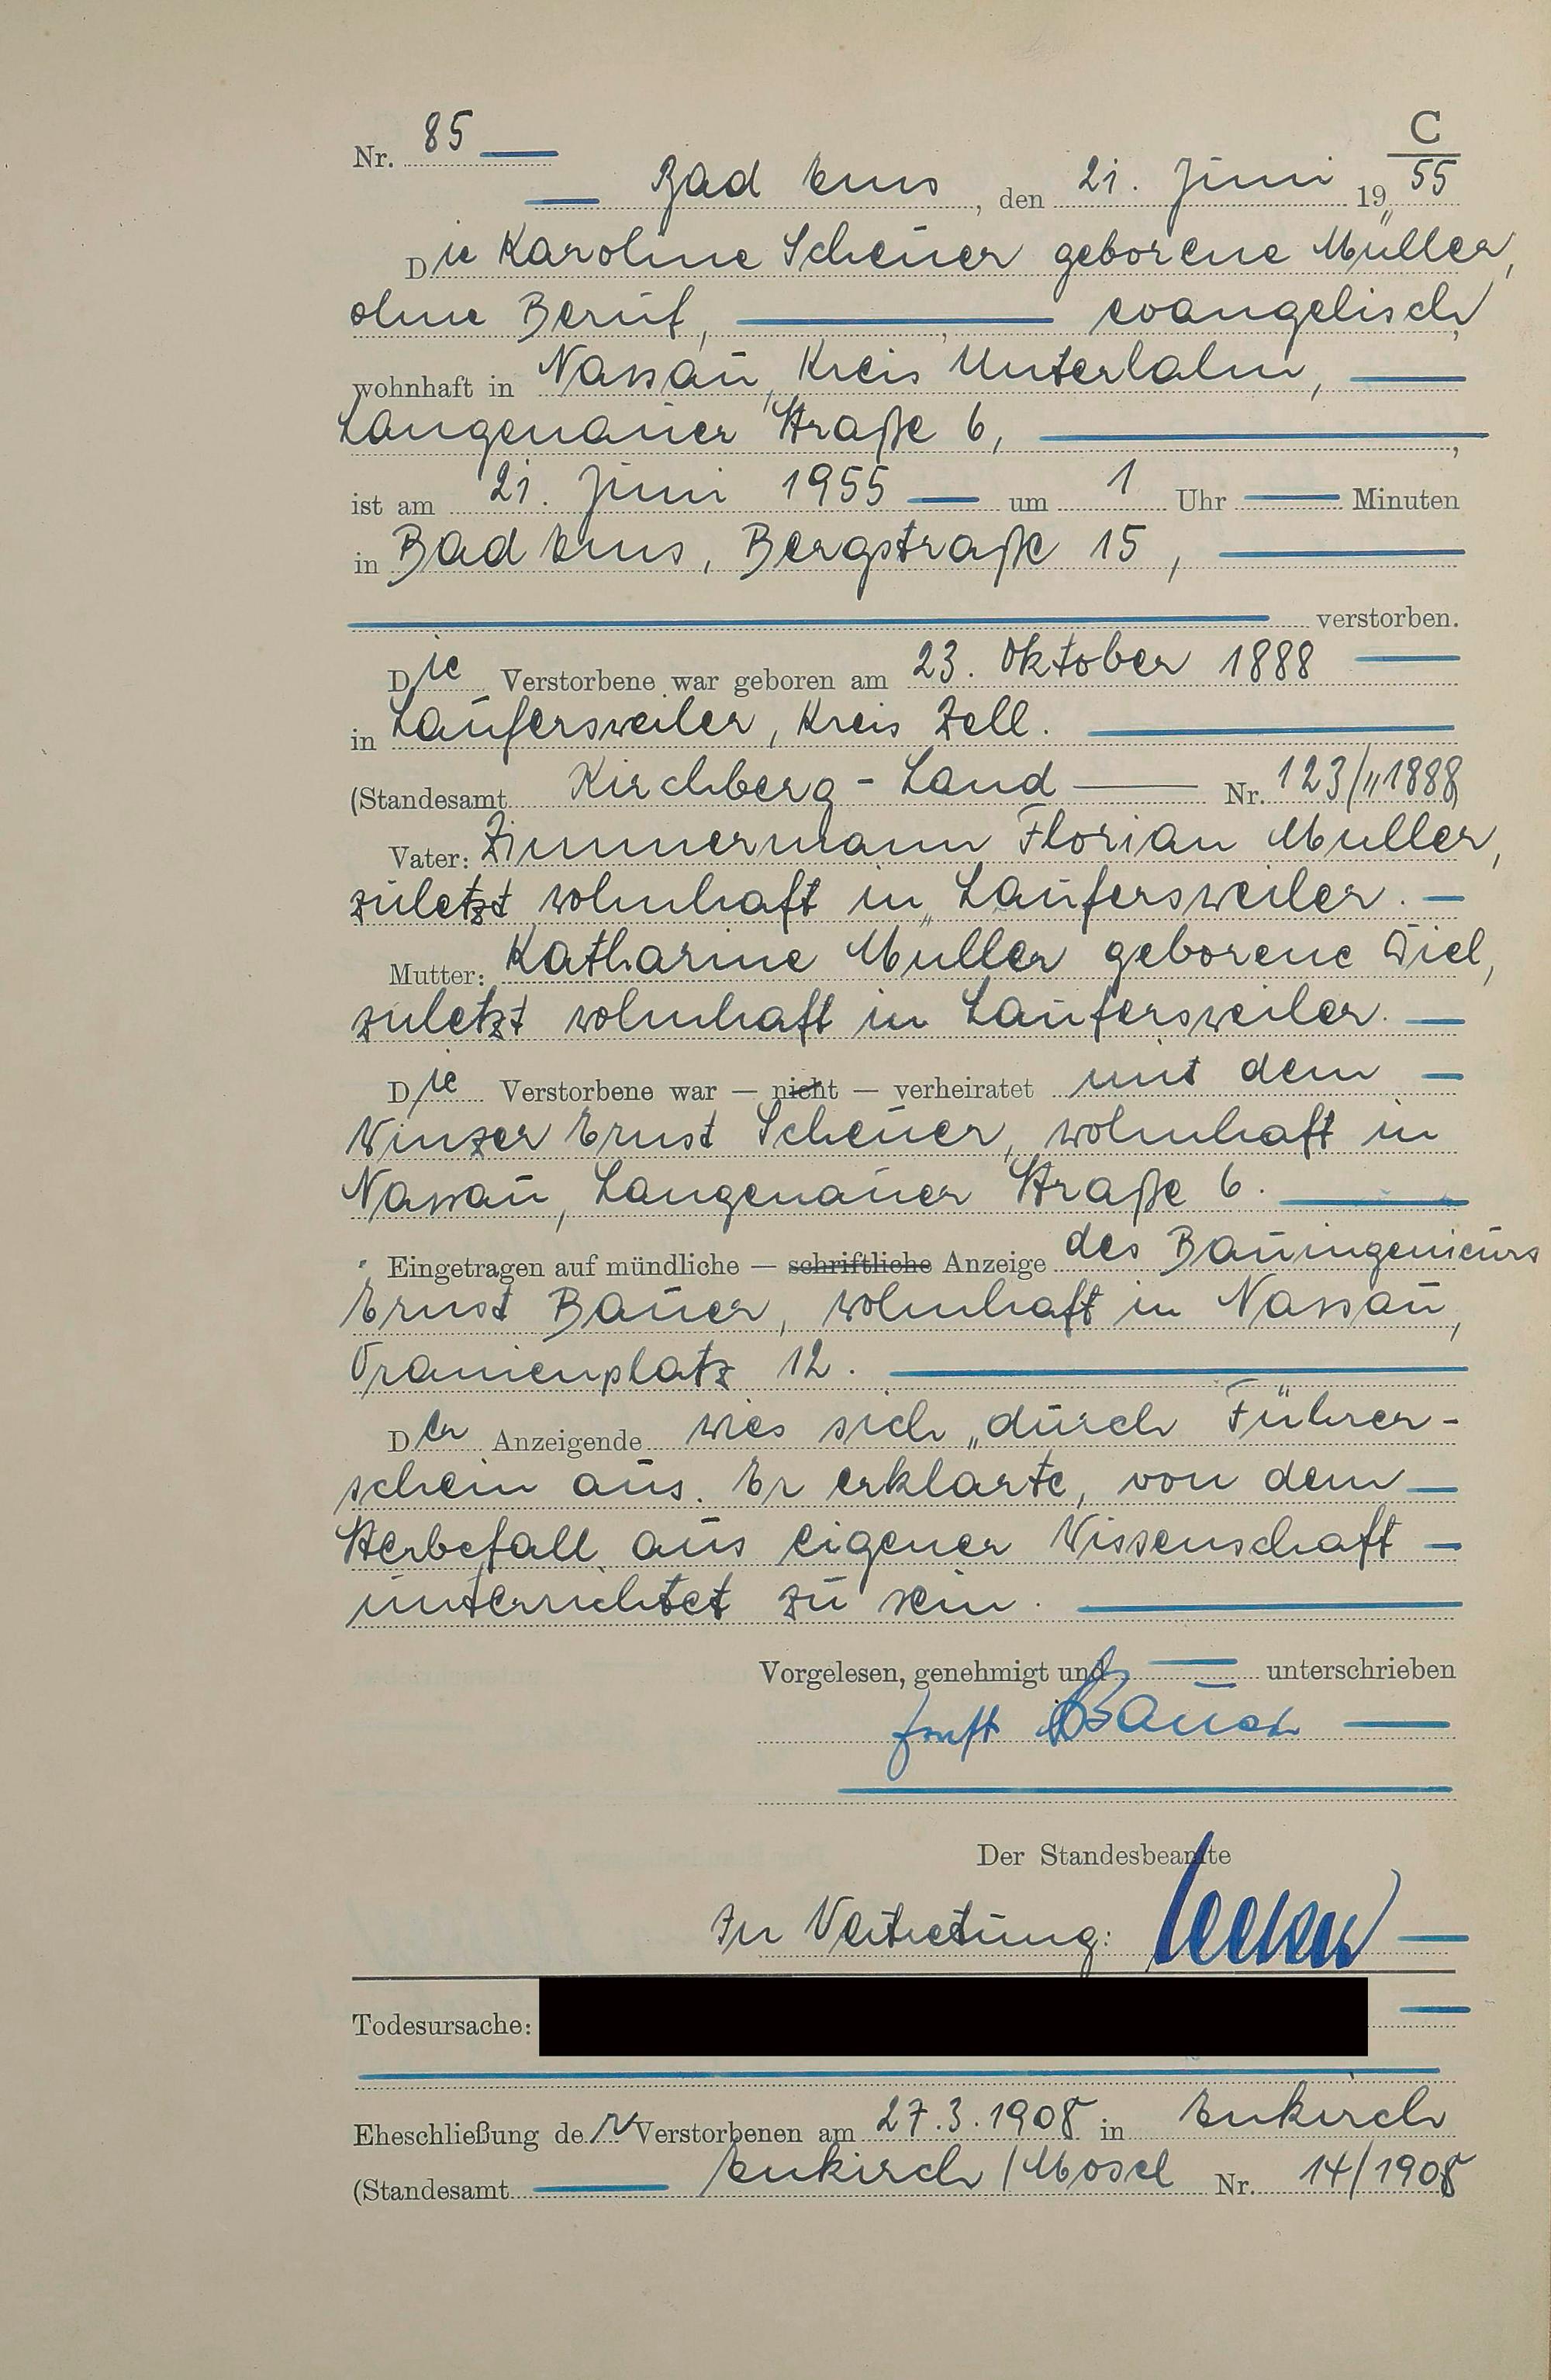 C
Nr. 85
Bad Ems, den 21. Juni 1955
Die Karoline Scheuer geborene Müller,
ohne Beruf, evangelisch,
wohnhaft in Nassau, Kreis Unterlahn,
Langenauer Straße 6,
ist am 21. Juni 1955 um 1 Uhr Minuten
in Bad Ems, Bergstraße 15,
verstorben.
Die Verstorbene war geboren am 23. Oktober 1888
in Laufersweiler, Kreis Zell.
(Standesamt Kirchberg-Land Nr. 123/1888)
Vater: Zimmermann Florian Müller,
zuletzt wohnhaft in Laufersweiler.
Mutter: Katharine Müller geborene Diel,
zuletzt wohnhaft in Laufersweiler.
Die Verstorbene war — nicht — verheiratet mit dem
Winzer Ernst Scheuer, wohnhaft in
Nassau, Langenauer Straße 6.
Eingetragen auf mündliche — schriftliche Anzeige des Bauingenieurs
Ernst Bauer, wohnhaft in Nassau,
Oranienplatz 12.
Der Anzeigende wies sich durch Führer-
schein aus. Er erklärte, von dem
Sterbefall aus eigener Wissenschaft
unterrichtet zu sein.
Vorgelesen, genehmigt und unterschrieben
Ernst Bauer
Der Standesbeamte
In Vertretung:
Todesursache:
Eheschließung der Verstorbenen am 27.3.1908 in Enkirch
(Standesamt Enkirch/Mosel Nr. 14/1908